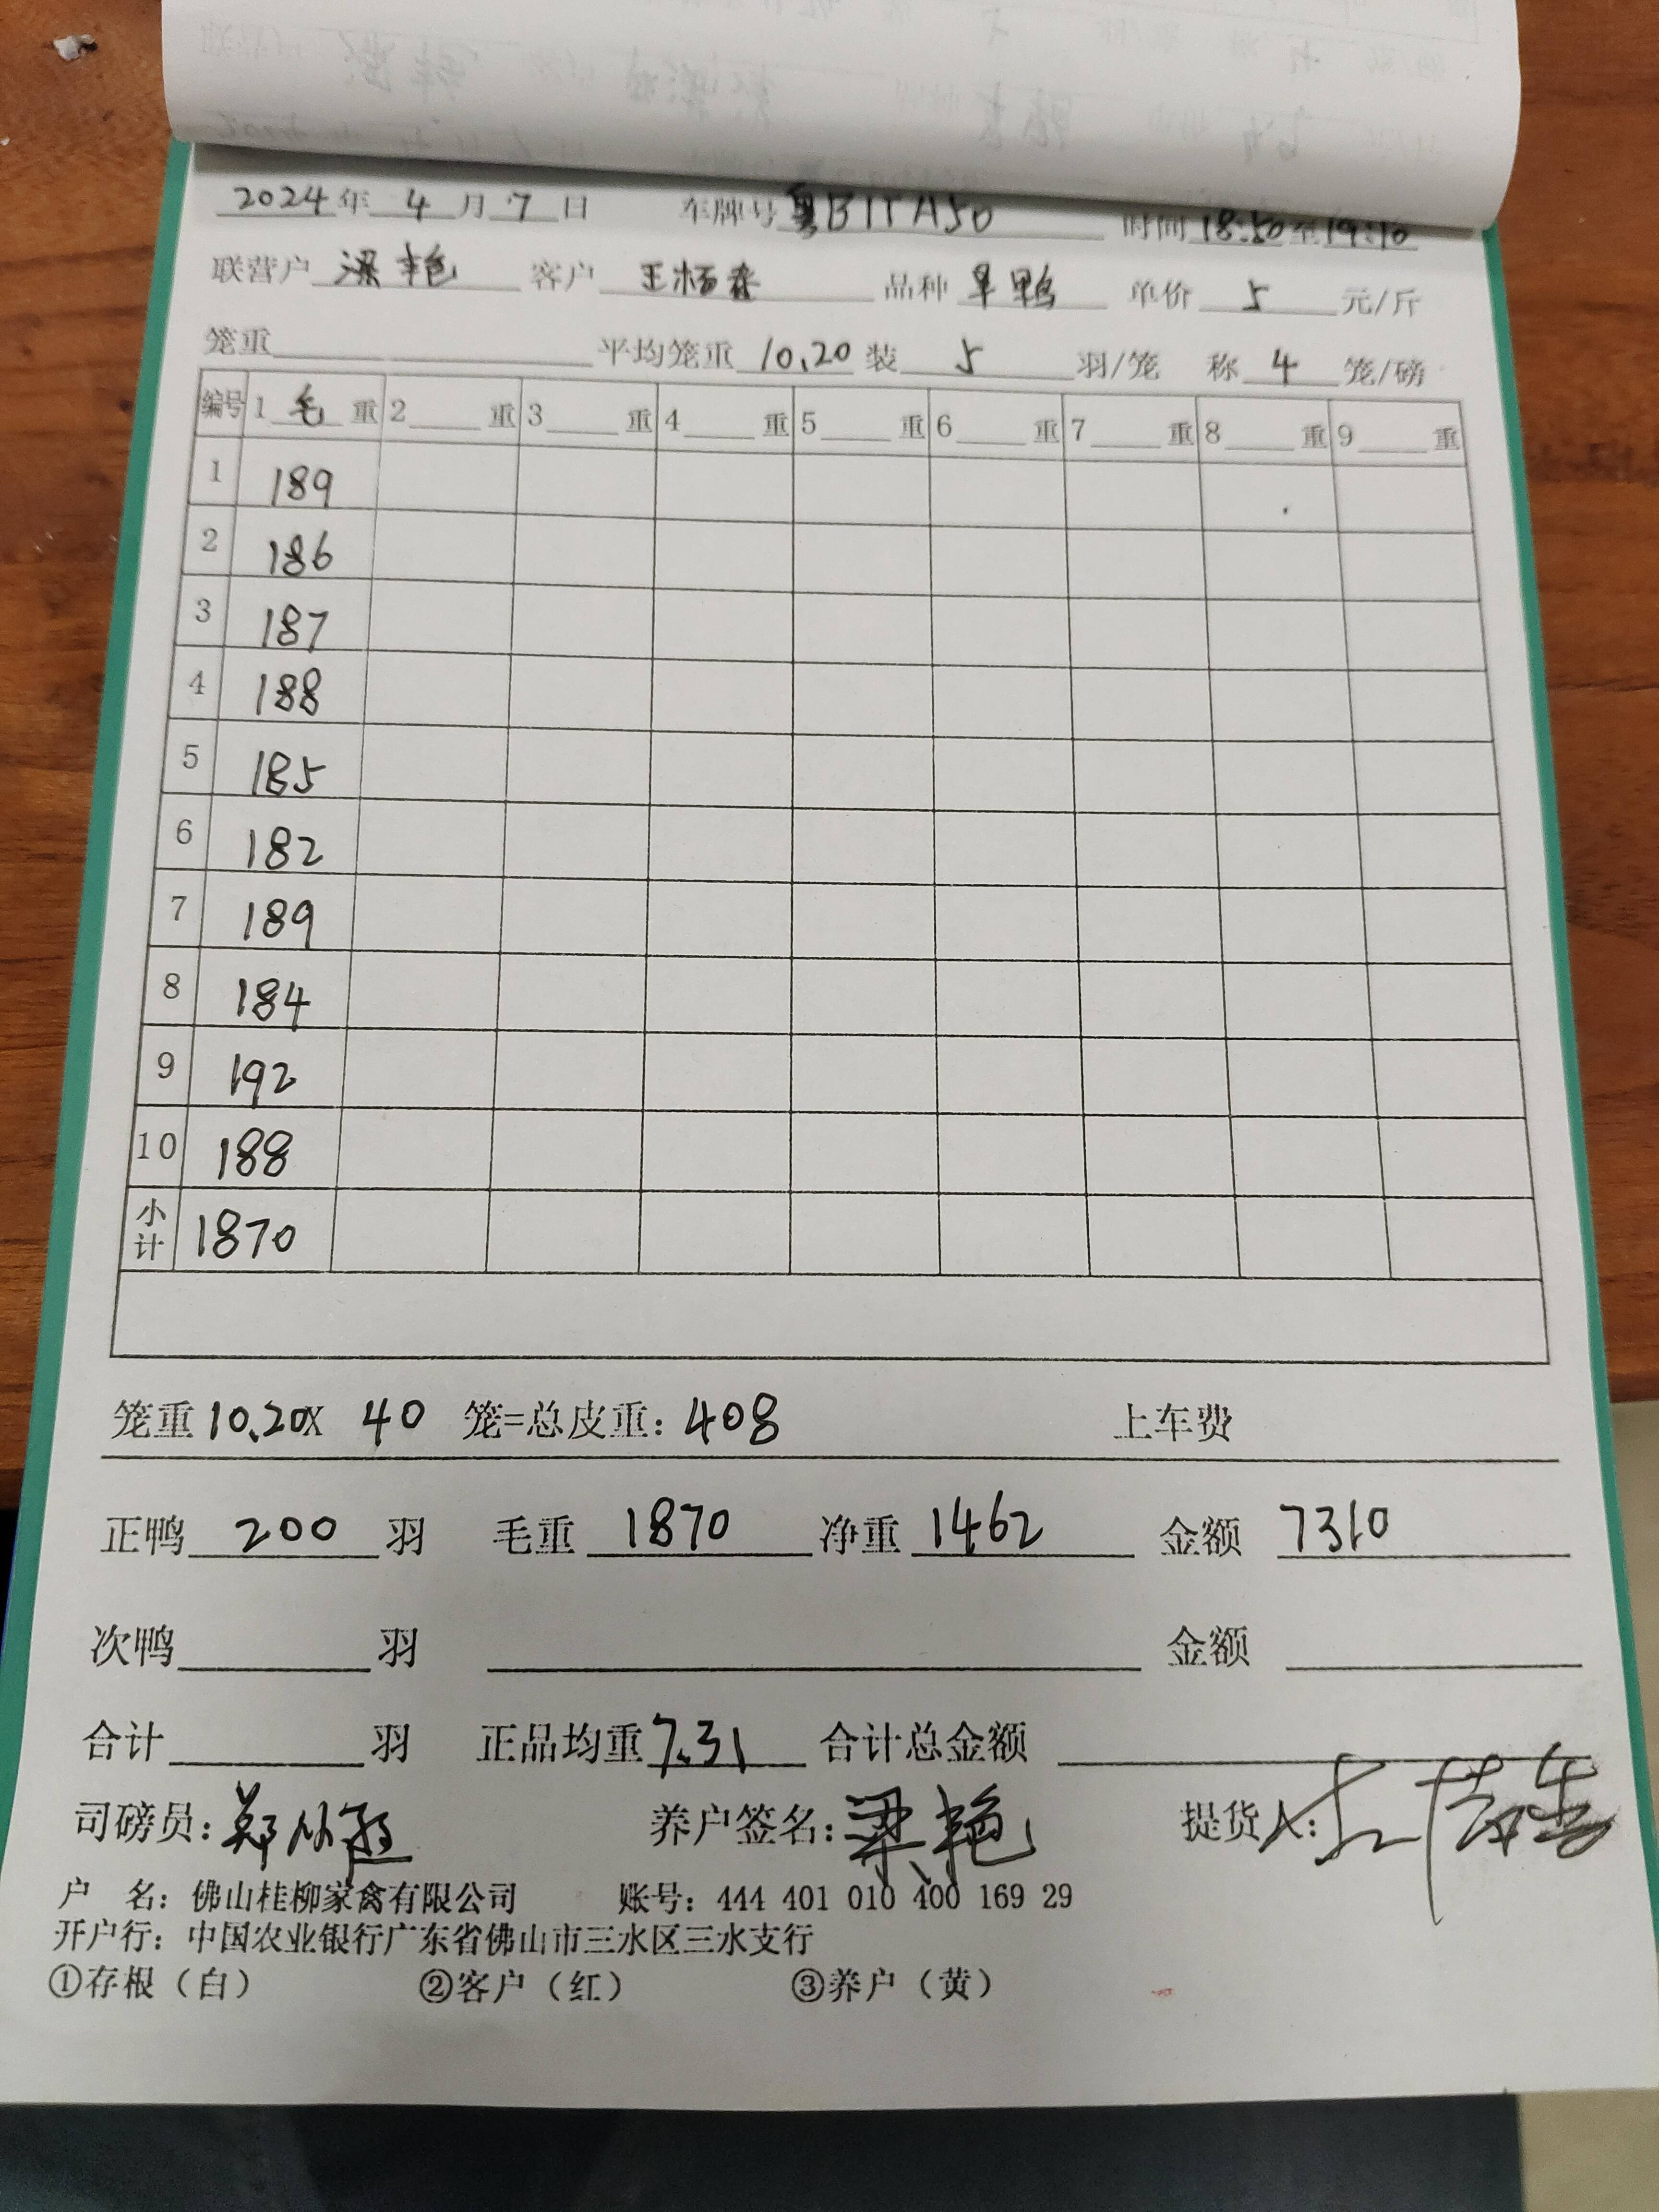 2024年 4 月 7 日 车牌号 粤B1TA50 时间 18:50至19:10
联营户 梁艳 客户 王杨森 品种 旱鸭 单价 5 元/斤
笼重 平均笼重 10.20 装 5 羽/笼 称 4 笼/磅
编号 1 毛 重 2 重 3 重 4 重 5 重 6 重 7 重 8 重 9 重
1 189
2 186
3 187
4 188
5 185
6 182
7 189
8 184
9 192
10 188
小计 1870
笼重 10.20X 40 笼=总皮重: 408 上车费
正鸭 200 羽 毛重 1870 净重 1462 金额 7310
次鸭 羽 金额
合计 羽 正品均重 7.31 合计总金额
司磅员: 养户签名: 梁艳 提货人:
户 名: 佛山桂柳家禽有限公司 账号: 444 401 010 400 169 29
开户行: 中国农业银行广东省佛山市三水区三水支行
①存根（白） ②客户（红） ③养户（黄）